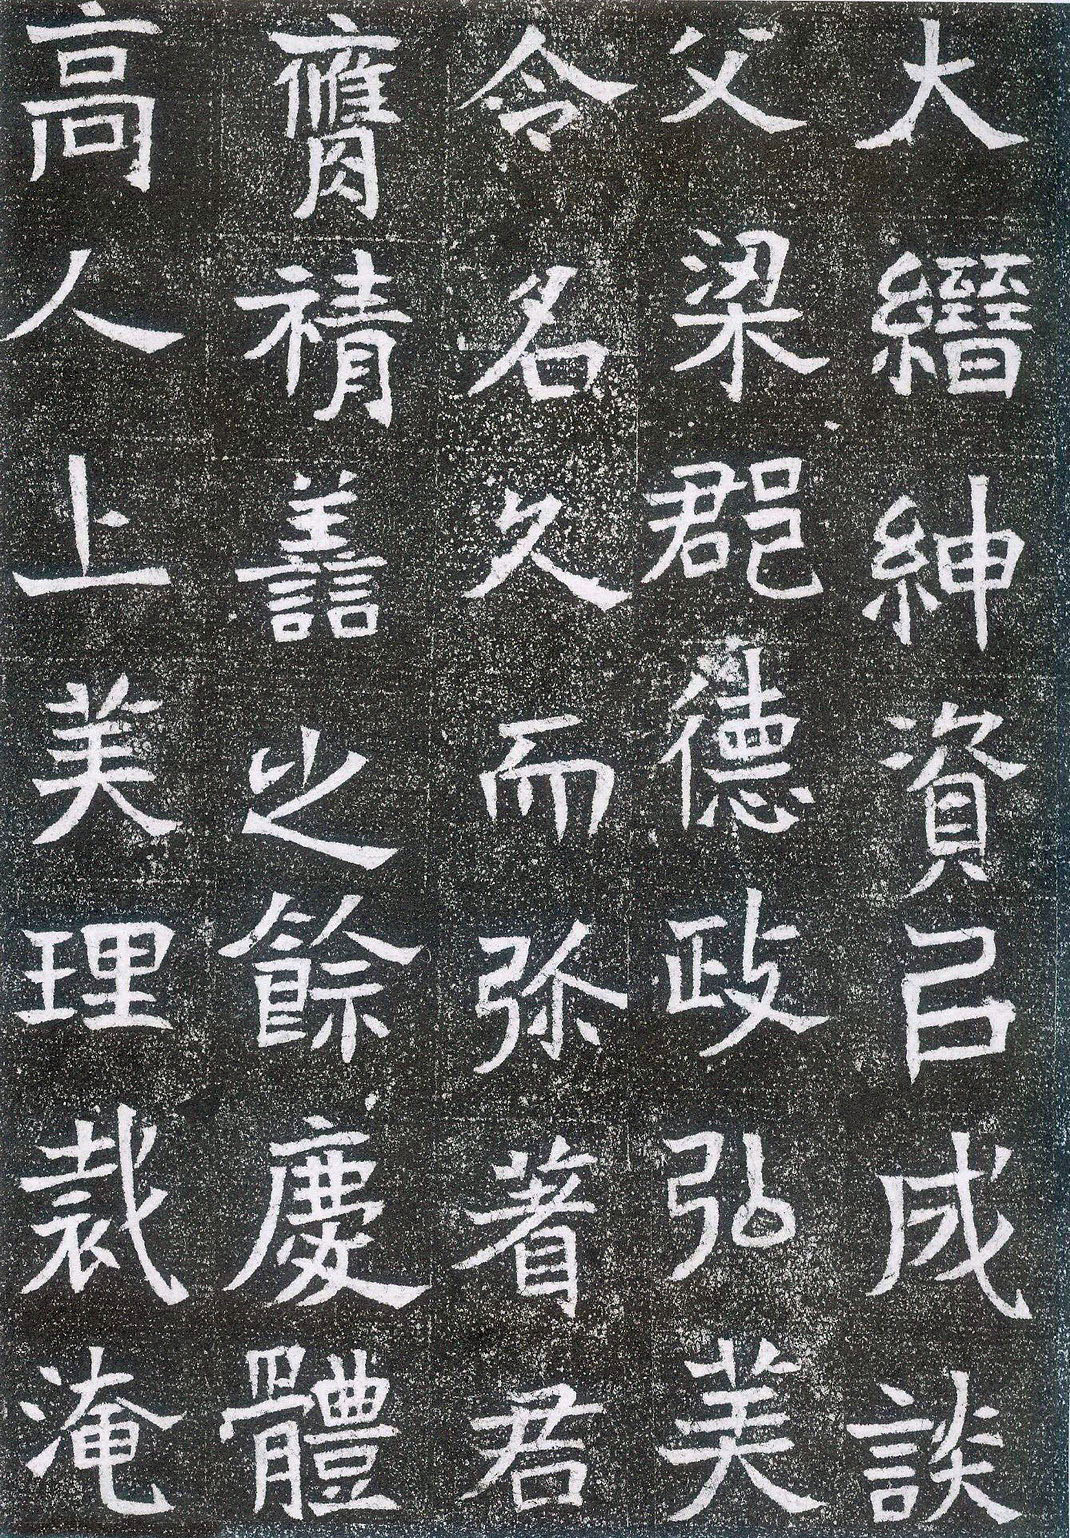 大縉紳資㠯成談
父梁郡德政弘美
令名久而弥著君
膺積譱之餘慶體
高人上美理裁淹